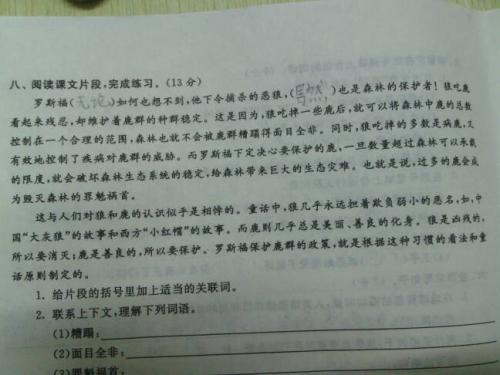 八、阅读课文片段,完成练习。(13分)
罗斯福(无论)如何也想不到,他下令捕杀的恶狼,(居然)也是森林的保护者!狼吃鹿
看起来残忍,却维护着鹿群的种群稳定。这是因为,狼吃掉一些鹿后,就可以将森林中鹿的总数
控制在一个合理的范围,森林也就不会被鹿群糟蹋得面目全非。同时,狼吃掉的多数是病鹿,又
有效地控制了疾病对鹿群的威胁。而罗斯福下定决心要保护的鹿,一旦数量超过森林可以承载
的限度,就会破坏森林生态系统的稳定,给森林带来巨大的生态灾难。也就是说,过多的鹿会成
为毁灭森林的罪魁祸首。
这与人们对狼和鹿的认识似乎是相悖的。童话中,狼几乎永远担着欺负弱小的恶名,如,中
国“大灰狼”的故事和西方“小红帽”的故事。而鹿则几乎总是美丽、善良的化身。狼是凶残的,
所以要消灭;鹿是善良的,所以要保护。罗斯福保护鹿群的政策,就是根据这种习惯的看法和童
话原则制定的。
1. 给片段的括号里加上适当的关联词。
2. 联系上下文,理解下列词语。
(1)糟蹋:
(2)面目全非:
(3)罪魁祸首: